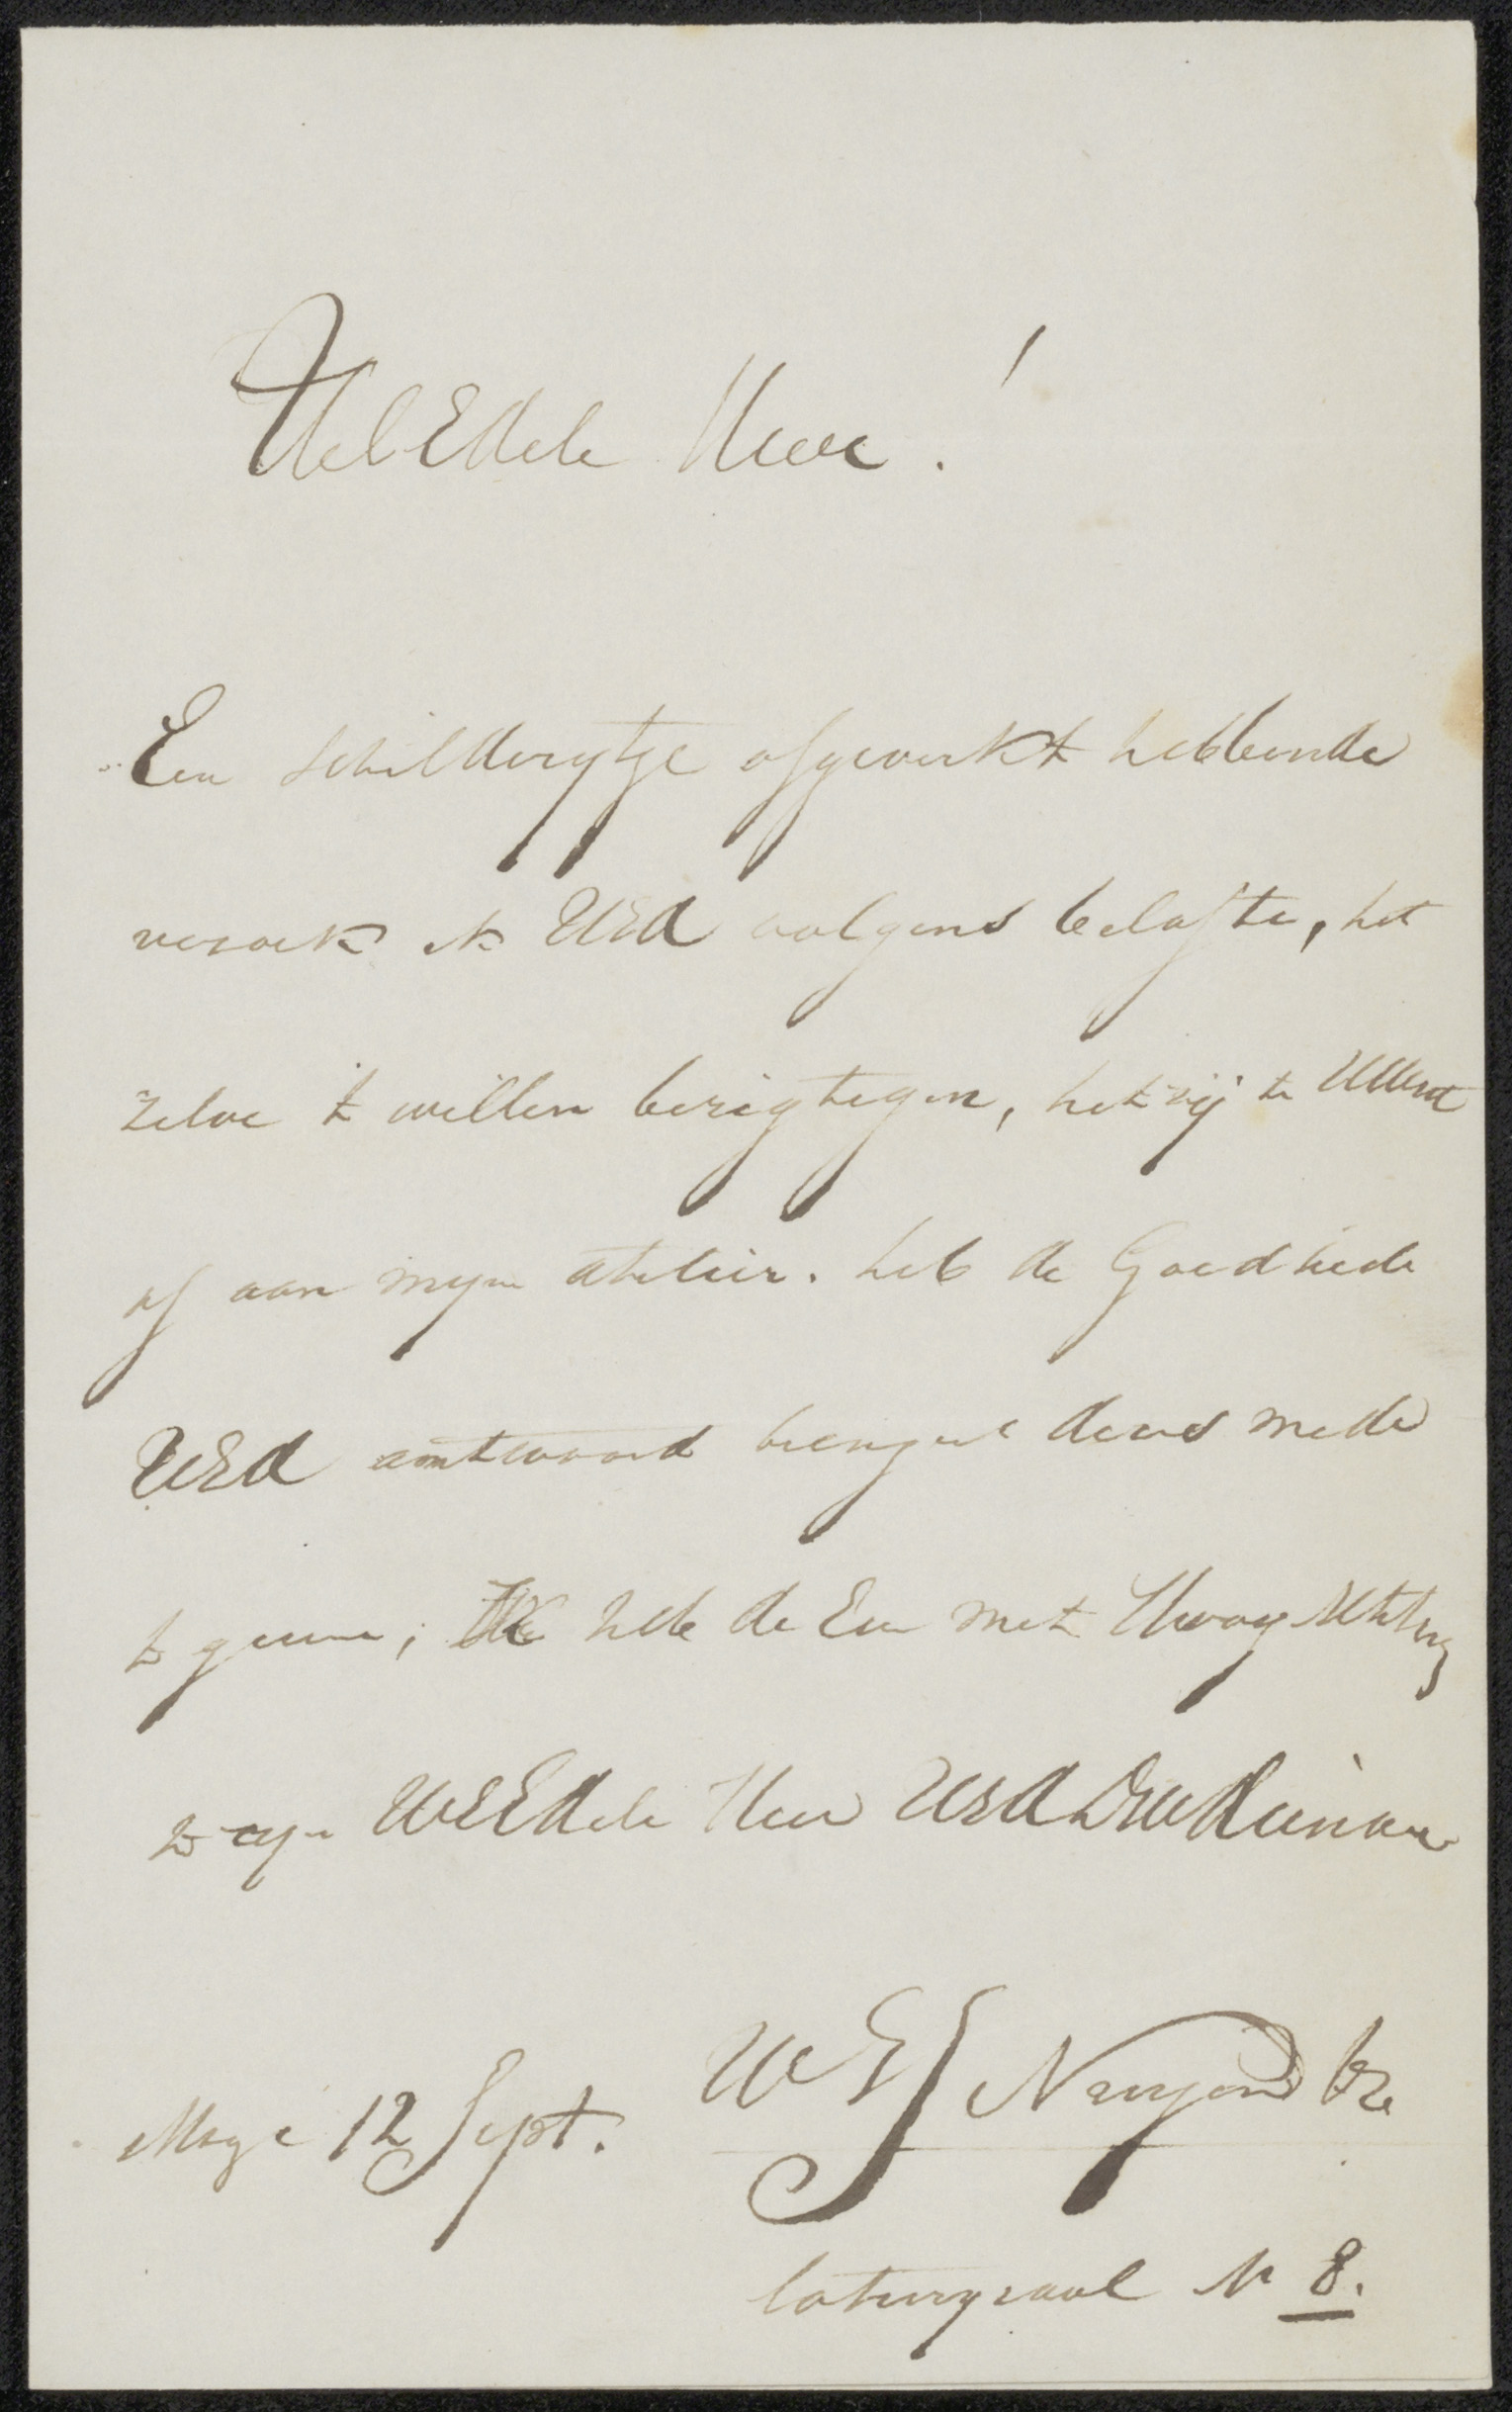 WelEdele Heer!
Een schilderytje afgewerkt hebbende
verzoek ik UEd volgens belofte, het
zelve te willen bezigtegen, het zij te Uwent
of aan myn atelier. heb de Goedhede
UEd antwoord brenger dees mede
te geeven; Ik heb de Eer met Hoog Achting
te zyn WelEdele Heer UEd DWDienaar
Hage 12 Sept.
W J J Nuyen
N 8.